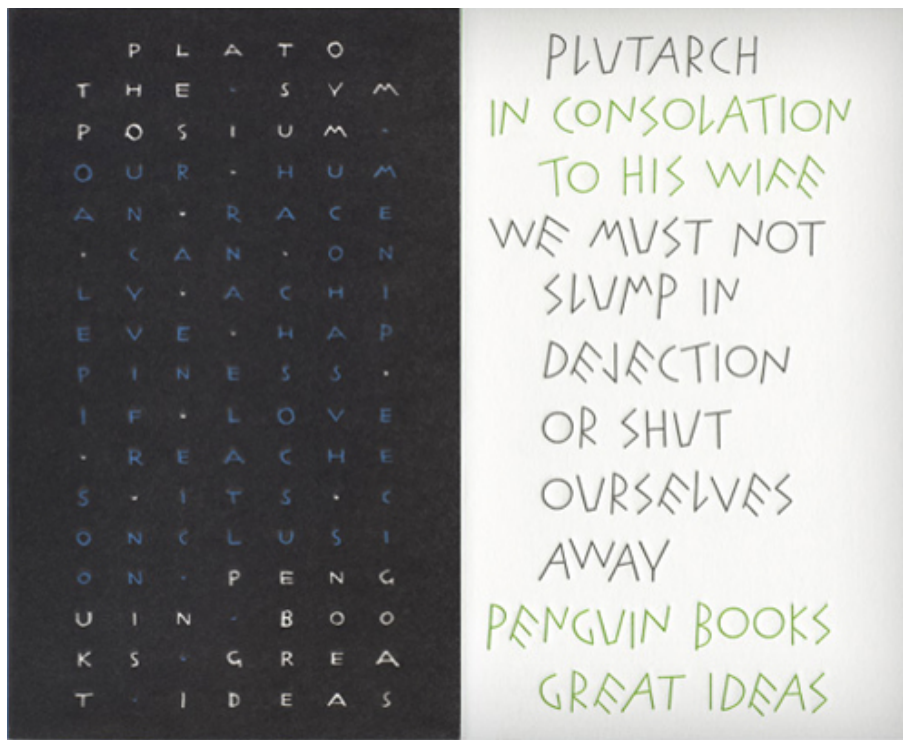 P L A T O
T H E · S Y M
P O S I U M ·
O U R · H U M
A N · R A C E
· C A N · O N
L Y · A C H I
E V E · H A P
P I N E S S ·
I F · L O V E
· R E A C H E
S · I T S · C
O N C L U S I
O N · P E N G
U I N · B O O
K S · G R E A
T · I D E A S
PLUTARCH
IN CONSOLATION
TO HIS WIFE
WE MUST NOT
SLUMP IN
DEJECTION
OR SHUT
OURSELVES
AWAY
PENGUIN BOOKS
GREAT IDEAS